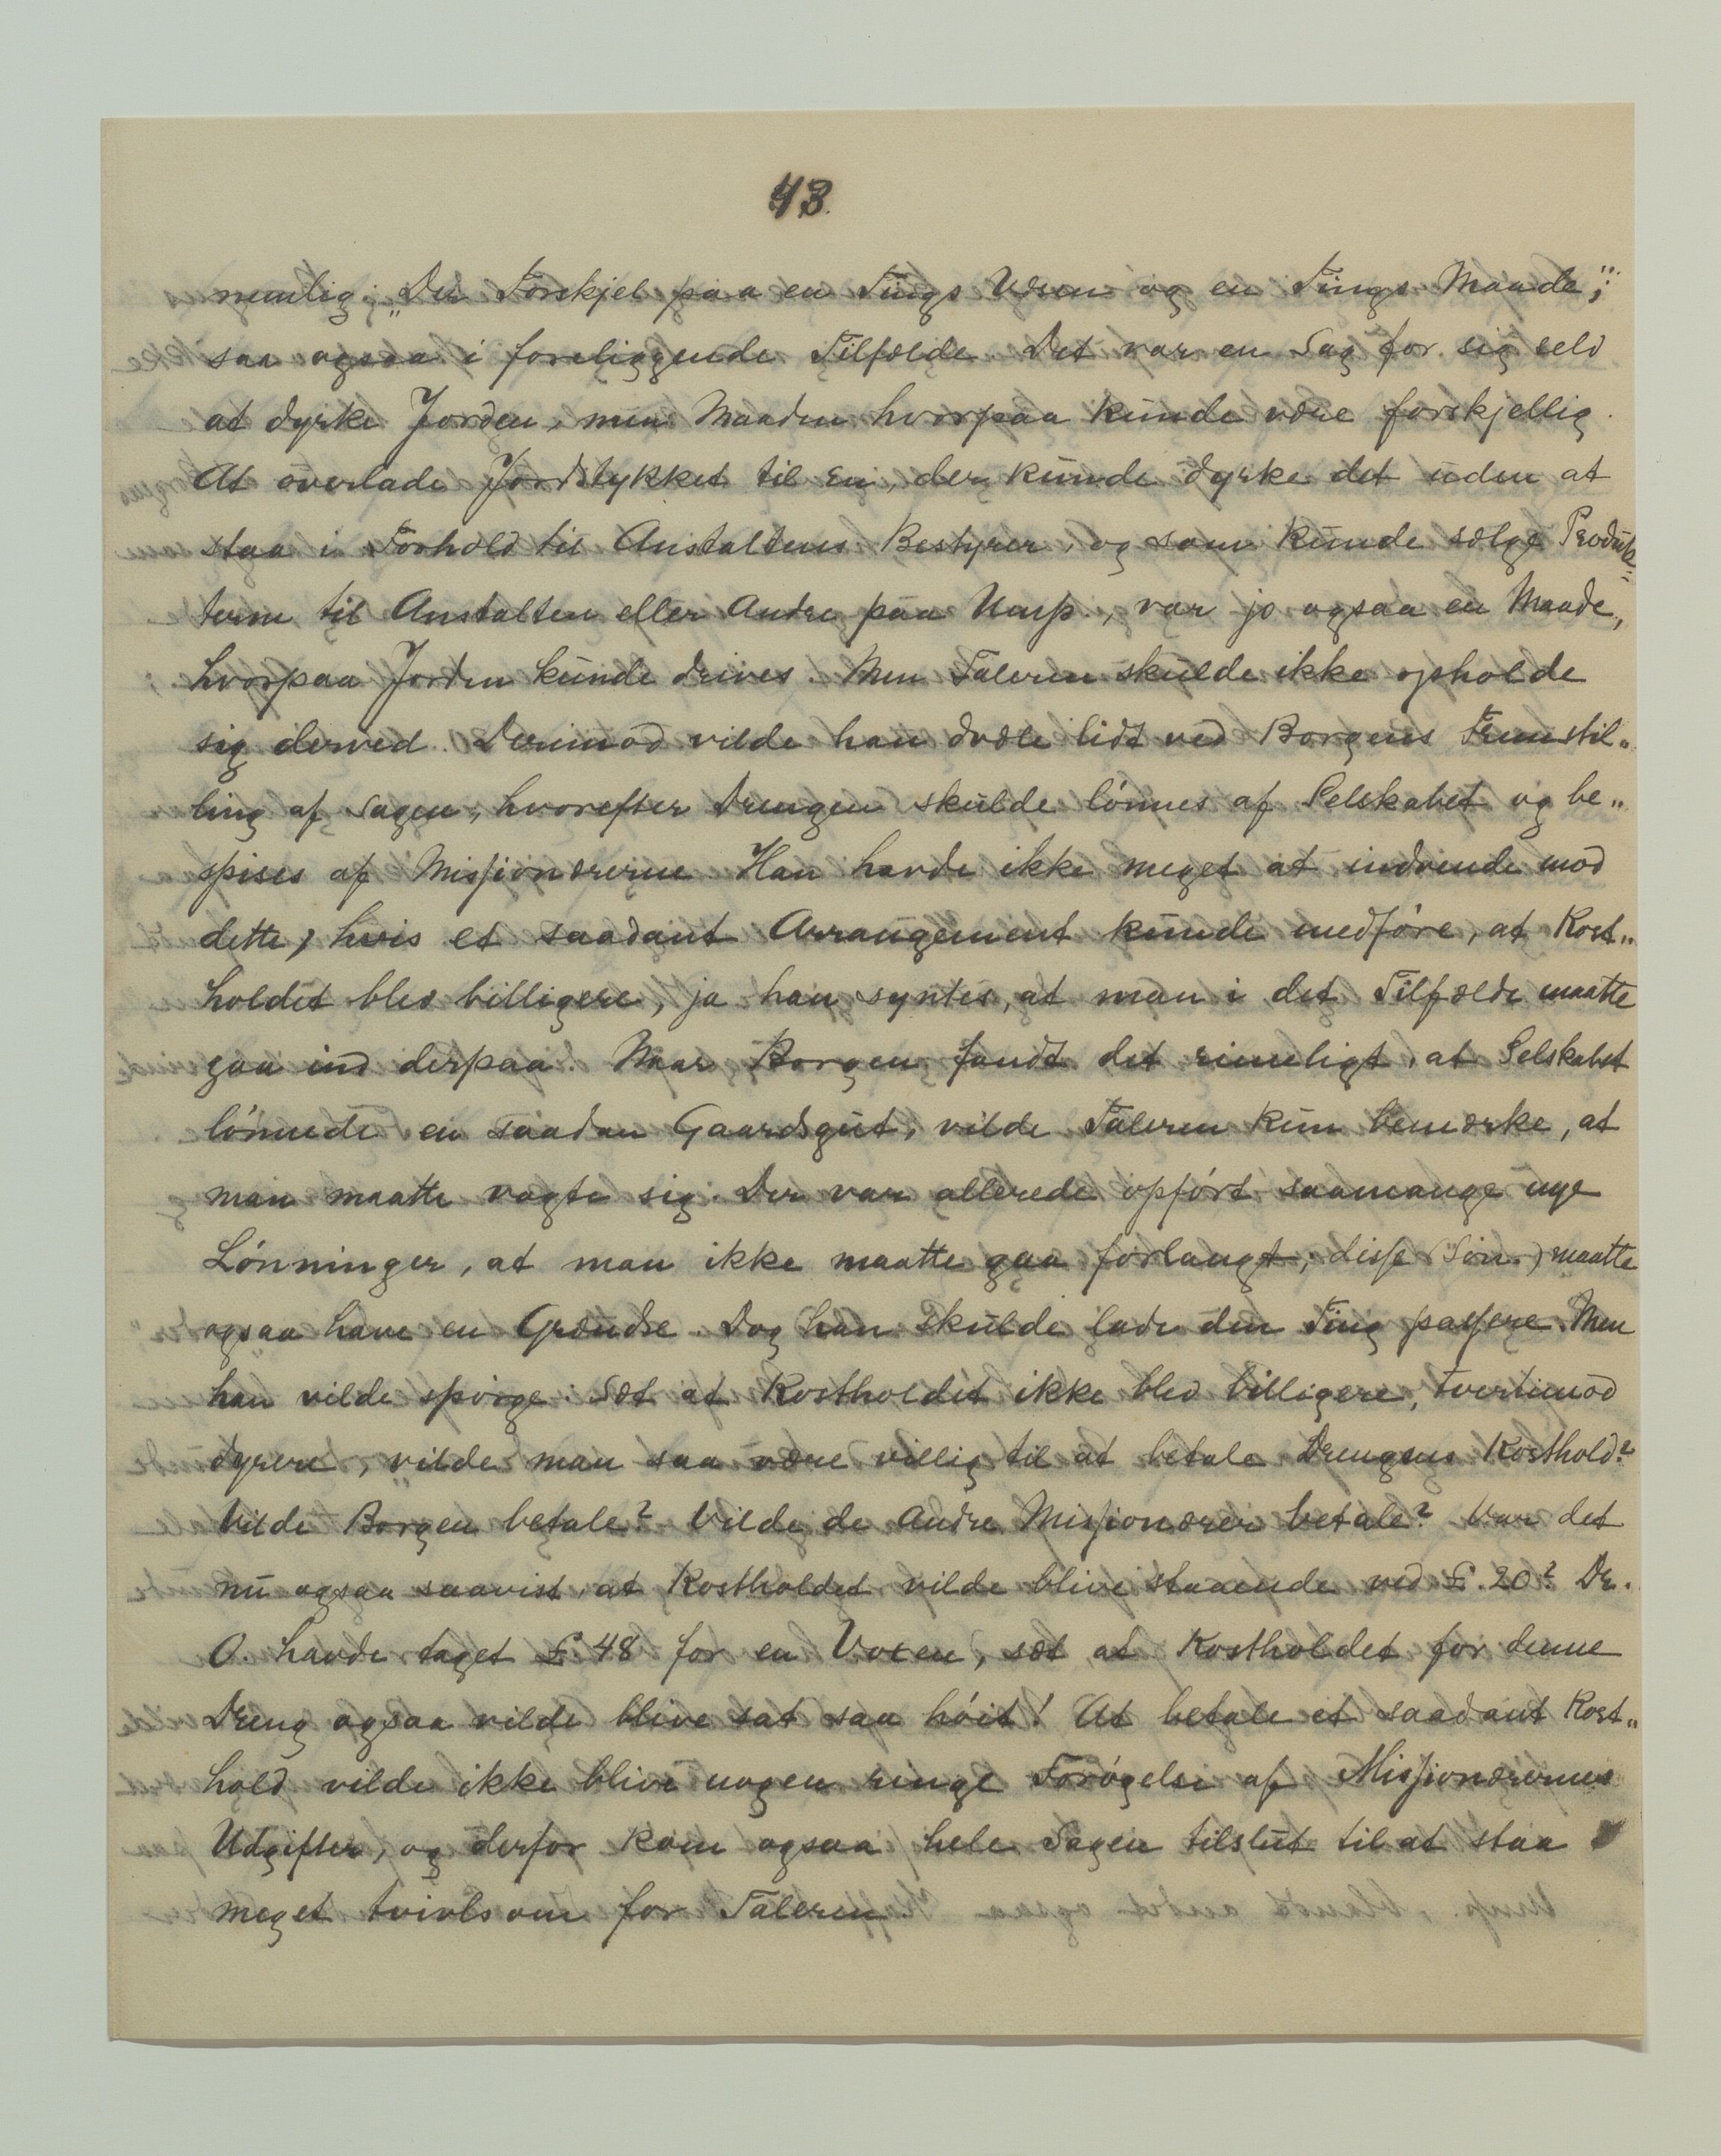 43.
nemlig: „Der Forskjel paa en Tings Væsen og en Tings Maade“;
saa ogsaa i foreliggende Tilfælde. Det var en Sag for sig selv
at dyrke Jorden, men Maaden hvorpaa kunde være forskjellig.
At overlade Jordstykket til En, der kunde dyrke det uden at
staa i Forhold til Anstaltens Bestyrer, og som kunde sælge Produk=
terne til Anstalten eller Andre paa Ump., var jo ogsaa en Maade,
hvorpaa Jorden kunde drives. Men Taleren skulde ikke opholde
sig derved. Derimod vilde han dvæle lidt ved Borgens Fremstil„
ling af Sagen, hvorefter Drengen skulde lønnes af Selskabet og be„
spises af Missionærerne. Han havde ikke meget at indvende mod
dette, hvis et saadant Arrangement kunde medføre, at Kost„
holdet blev billigere, ja han syntes, at man i det Tilfælde maatte
gaa ind derpaa. Naar Borgen fandt det rimeligt, at Selskabet
lønnede en saadan Gaardsgut, vilde Taleren kun bemærke, at
man maatte vogte sig. Der var allerede opført saamange nye
Lønninger, at man ikke maatte gaa forlangt; disse (Løn.) maatte
ogsaa have en Grændse. Dog han skulde lade den Ting passere. Men
han vilde spørge: Sæt at Kostholdet ikke blev billigere, tvertimod
dyrere, vilde man saa være villig til at betale Drengens Kosthold?
Vilde Borgen betale? Vilde de Andre Missionærer betale? Var det
nu ogsaa saavist, at Kostholdet vilde blive staaende ved £ 20? Dr.
O. havde taget £ 48 for en Voxen, sæt at Kostholdet for denne
Dreng ogsaa vilde blive sat saa høit! At betale et saadant Kost„
hold vilde ikke blive nogen ringe Forøgelse af Missionærernes
Udgifter, og derfor kom ogsaa hele Sagen tilslut til at staa
meget tvivlsom for Taleren.